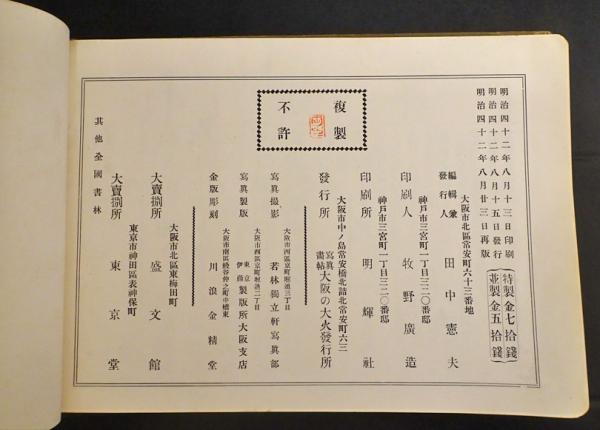 明治四十二年八月十三日印刷
明治四十二年八月十五日發行
明治四十二年八月廿三日再版
特製金七拾錢
並製金五拾錢
大阪市北區常安町六十三番地
編輯兼
發行人 田中憲夫
神戸市三宮町一丁目三二〇番邸
印刷人 牧野廣造
神戸市三宮町一丁目三二〇番邸
印刷所 明輝社
大阪市中ノ島常安橋北詰北常安町六三
發行所 寫真畫帖 大阪の大火發行所
複製
不許
大阪市西區京町堀通三丁目
寫真撮影 若林獨立軒寫真部
大阪市西區京町堀通二丁目
寫真製版 東京伊 製版所大阪支店
大阪市南區 谷仲之町中橋東
金版彫刻 川浪金精堂
大阪市北區東梅田町
大賣捌所 盛文館
東京市神田區表神保町
大賣捌所 東京堂
其他全國書林